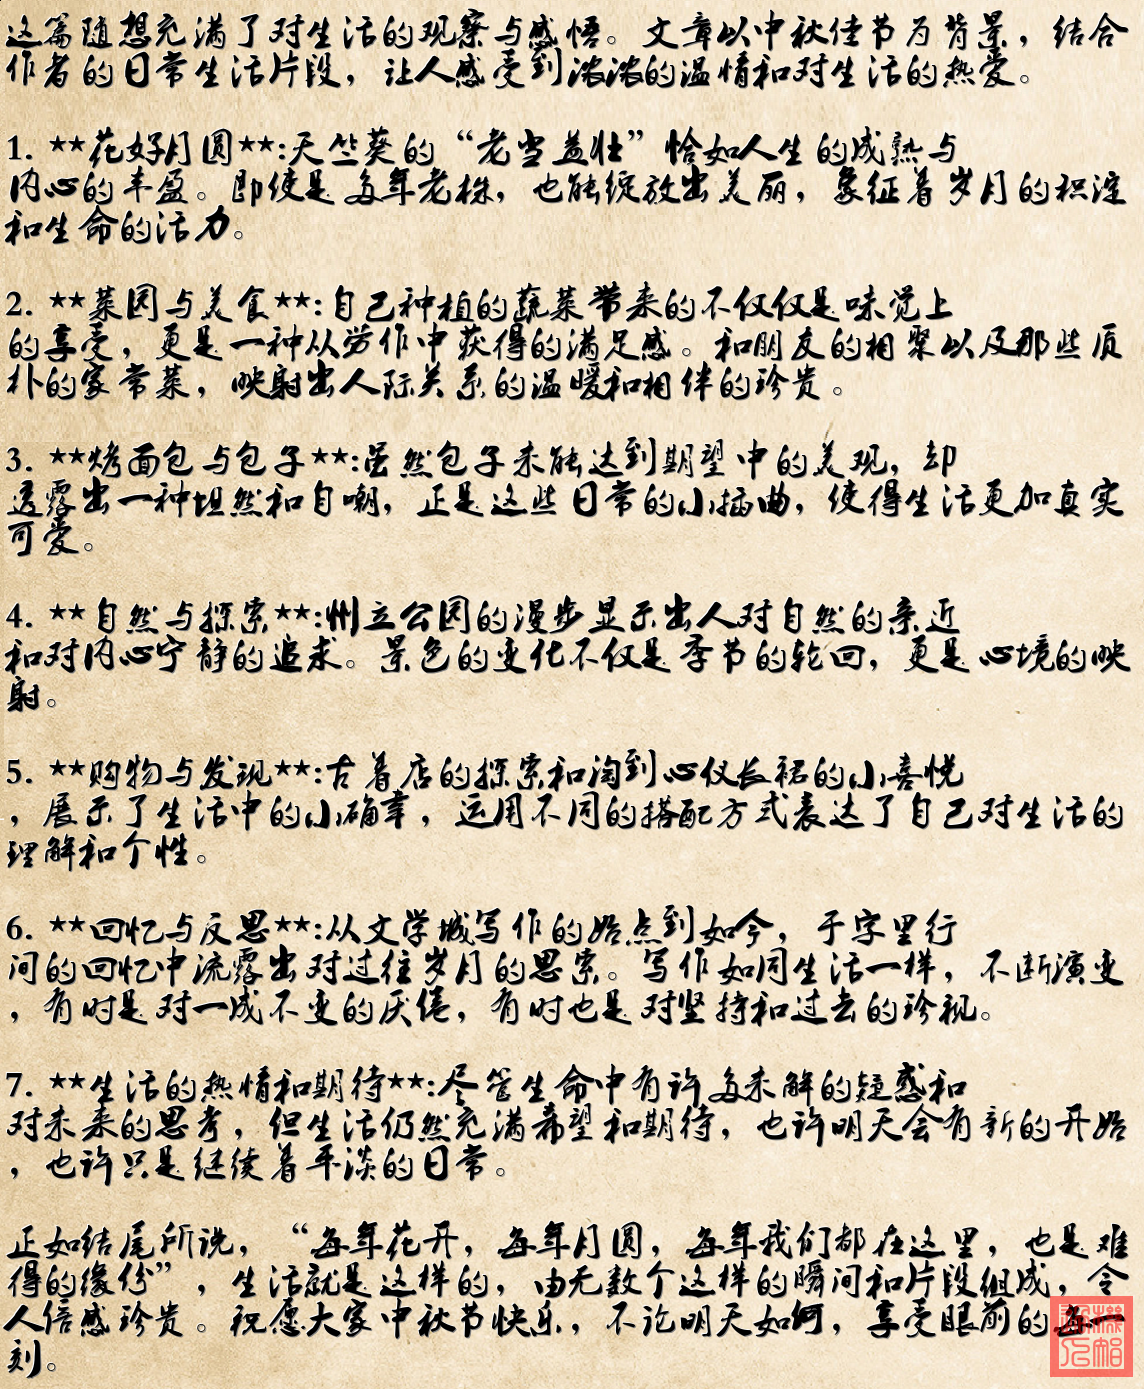 这篇随想充满了对生活的观察与感悟。文章以中秋佳节为背景，结合
作者的日常生活片段，让人感受到浓浓的温情和对生活的热爱。
1. **花好月圆**:天竺葵的“老当益壮”恰如人生的成熟与
内心的丰盈。即使是多年老株，也能绽放出美丽，象征着岁月的积淀
和生命的活力。
2. **菜园与美食**:自己种植的蔬菜带来的不仅仅是味觉上
的享受，更是一种从劳作中获得的满足感。和朋友的相聚以及那些质
朴的家常菜，映射出人际关系的温暖和相伴的珍贵。
3. **烤面包与包子**:虽然包子未能达到期望中的美观，却
透露出一种坦然和自嘲，正是这些日常的小插曲，使得生活更加真实
可爱。
4. **自然与探索**:州立公园的漫步显示出人对自然的亲近
和对内心宁静的追求。景色的变化不仅是季节的轮回，更是心境的映
射。
5. **购物与发现**:古着店的探索和淘到心仪长裙的小喜悦
，展示了生活中的小确幸，运用不同的搭配方式表达了自己对生活的
理解和个性。
6. **回忆与反思**:从文学城写作的始点到如今，于字里行
间的回忆中流露出对过往岁月的思索。写作如同生活一样，不断演变
，有时是对一成不变的厌倦，有时也是对坚持和过去的珍视。
7. **生活的热情和期待**:尽管生命中有许多未解的疑惑和
对未来的思考，但生活仍然充满希望和期待，也许明天会有新的开始
，也许只是继续着平淡的日常。
正如结尾所说，“每年花开，每年月圆，每年我们都在这里，也是难
得的缘份”，生活就是这样的，由无数个这样的瞬间和片段组成，令
人倍感珍贵。祝愿大家中秋节快乐，不论明天如何，享受眼前的每一
刻。